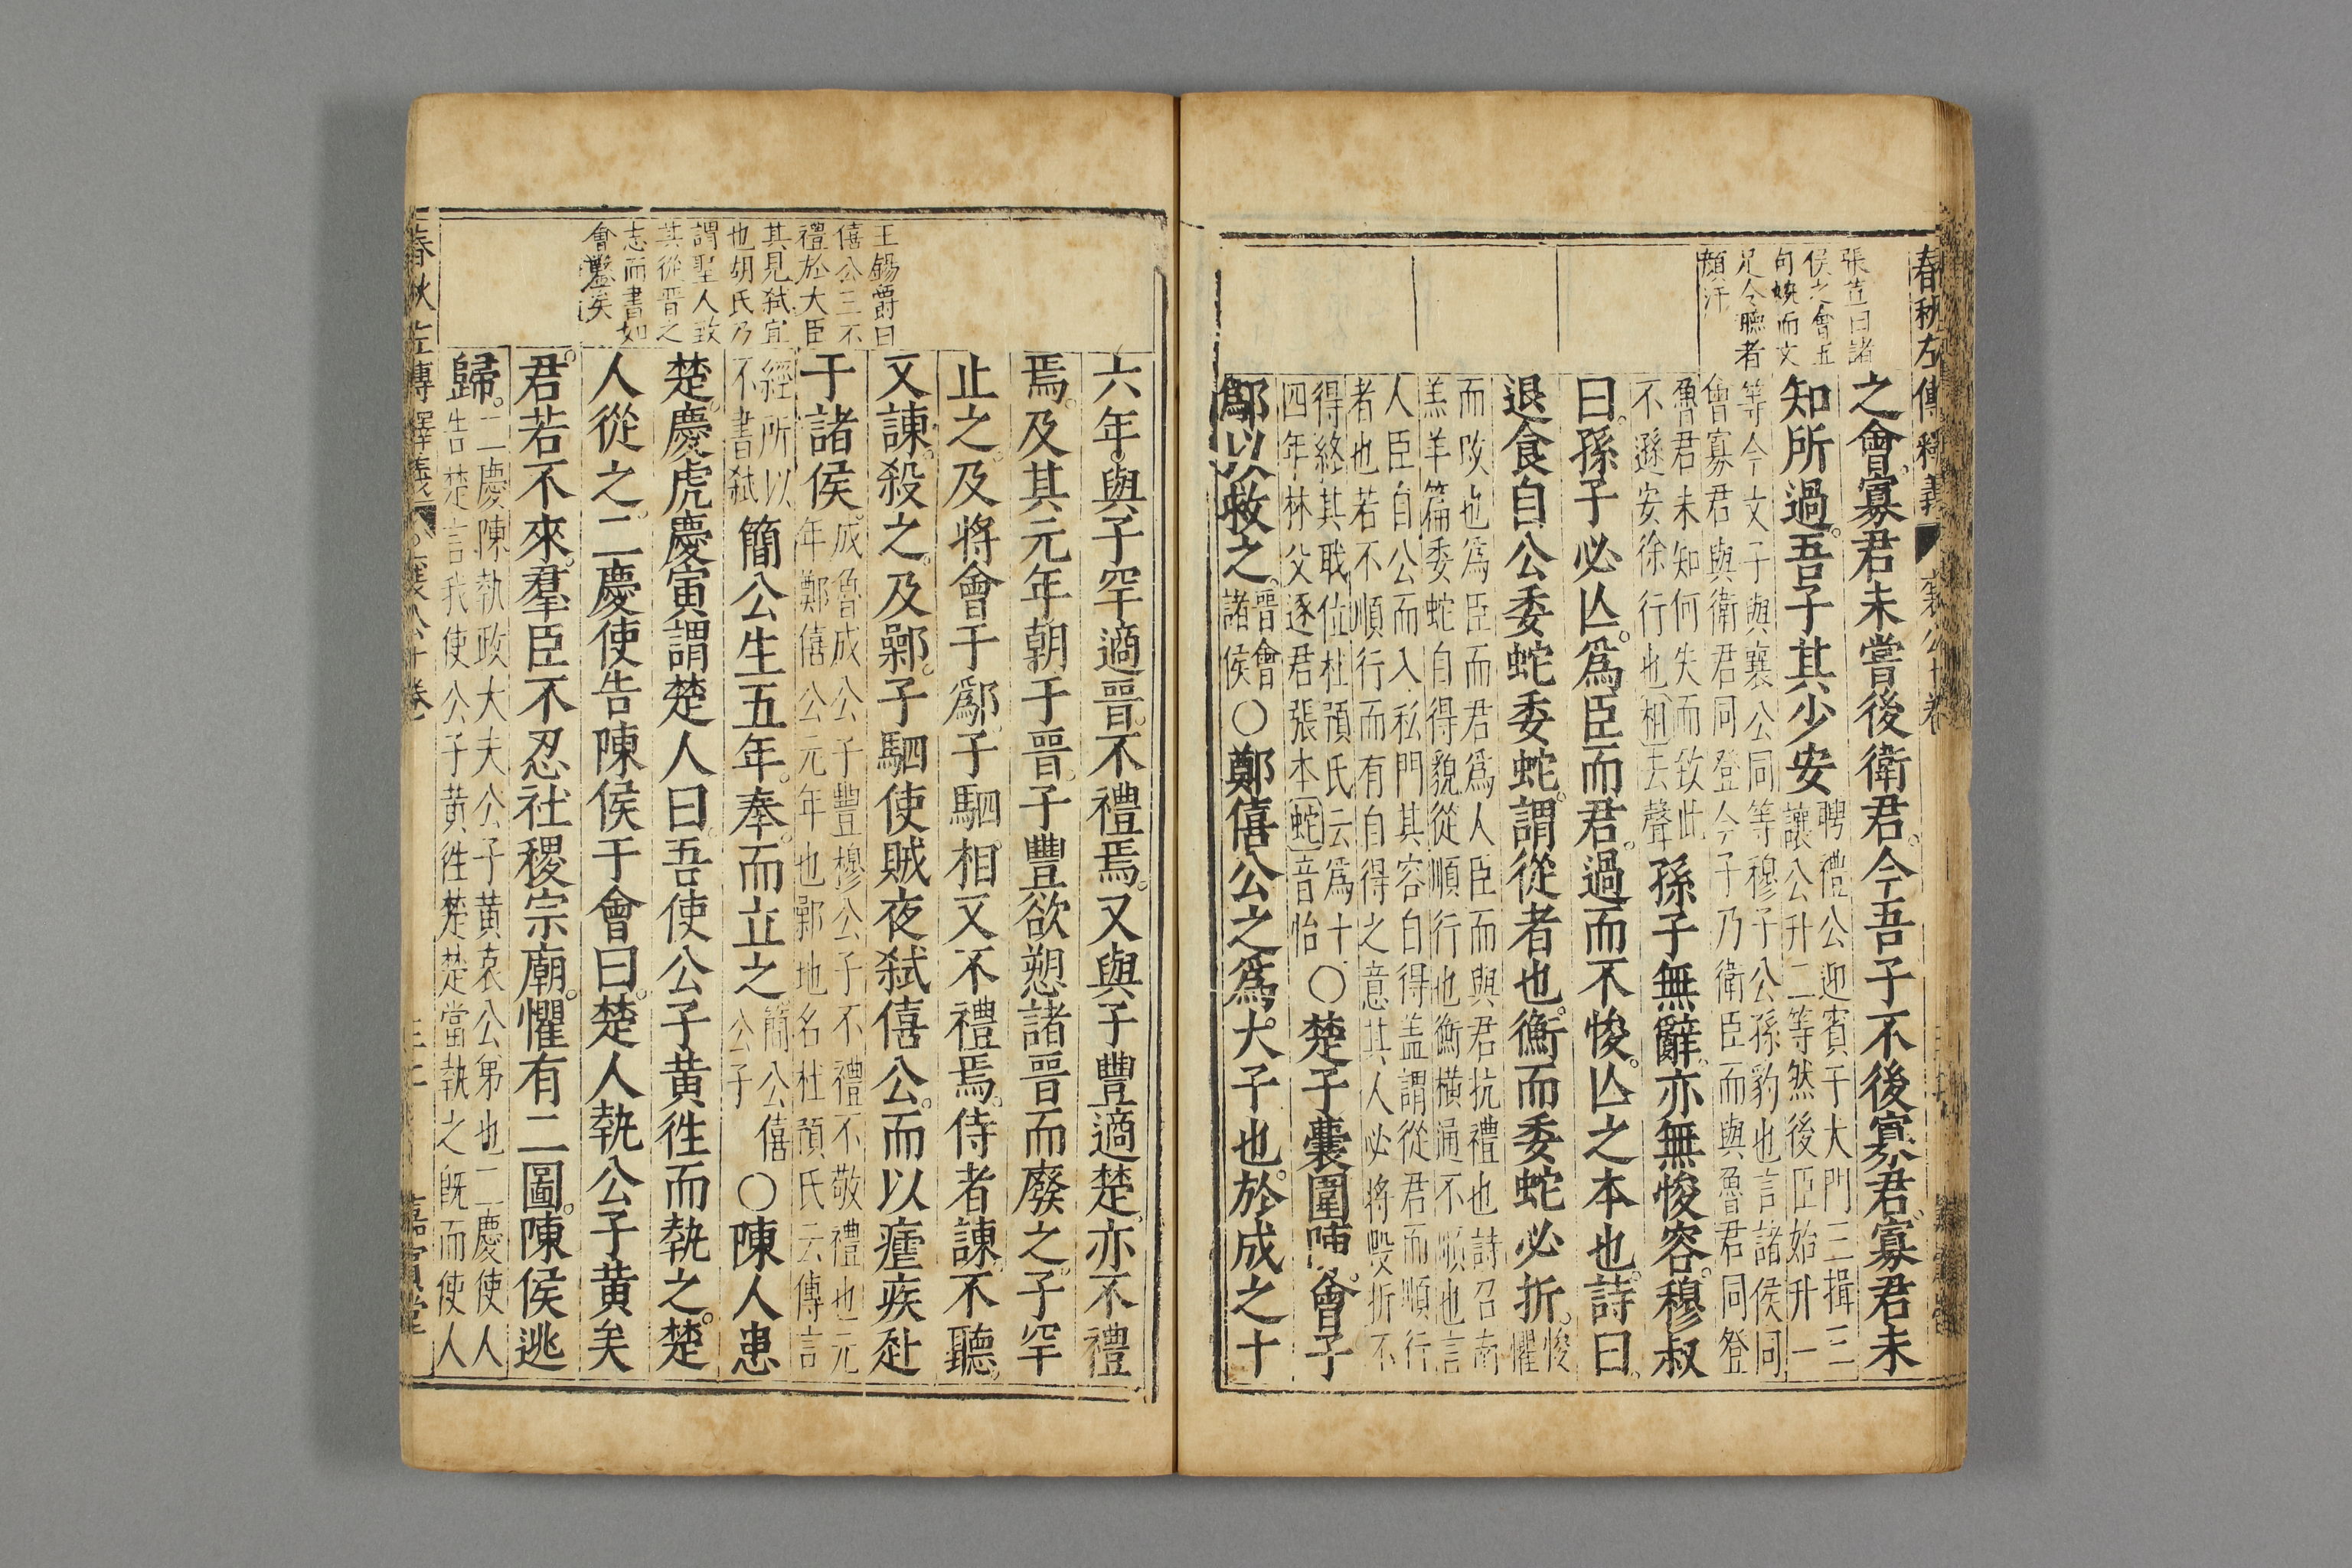 春秋左傳釋義 襄公十卷
張萱曰諸
侯之會五
句婉而文
足令聽者
顏汗
之會寡君未嘗後衛君今吾子不後寡君寡君未
知所過吾子其少安
聘禮公迎賓于大門三揖三
讓公升二等然後臣始升一
等今文子與襄公同等穆子公孫豹也言諸侯同
會寡君與衛君同登今子乃衛臣而與魯君同登
魯君未知何失而致此
不遜安徐行也相去聲
孫子無辭亦無悛容穆叔
曰孫子必亾爲臣而君過而不悛亾之本也詩曰
退食自公委蛇委蛇謂從者也衡而委蛇必折
悛
懼
而攺也爲臣而君爲人臣而與君抗禮也詩召南
羔羊篇委蛇自得貌從順行也衡橫逼不順也言
人臣自公而入私門其容自得盖謂從君而順行
者也若不順行而有自得之意其人必將毀折不
得終其戢位杜預氏云爲十
四年林父逐君張本蛇音怡
○楚子囊圍陳會于
鄬以救之
晉會
諸侯
○鄭僖公之爲大子也於成之十
六年與子罕適晉不禮焉又與子豐適楚亦不禮
焉及其元年朝于晉子豐欲愬諸晉而廢之子罕
止之及將會于鄬子駟相又不禮焉侍者諫不聽
又諫殺之及鄵子駟使賊夜弑僖公而以瘧疾赴
于諸侯
成魯成公子豐穆公子不禮不敬禮也元
年鄭僖公元年也鄵地名杜預氏云傳言
經所以
不書弑
簡公生五年奉而立之
簡公僖
公子
○陳人患
楚慶虎慶寅謂楚人曰吾使公子黃徃而執之楚
人從之二慶使告陳侯于會曰楚人執公子黃矣
君若不來羣臣不忍社稷宗廟懼有二圖陳侯逃
歸
二慶陳執政大夫公子黃哀公弟也二慶使人
告楚言我使公子黃徃楚楚當執之旣而使人
王錫爵曰
僖公三不
禮於大臣
其見弑宜
也胡氏乃
謂聖人致
其從晉之
志而書如
會鑿矣
春秋左傳釋義 襄公十卷
嘉賓堂